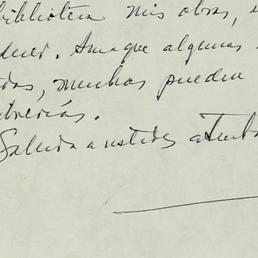 biblioteca mis obras, e
Aunque algunas
das, muchas pueden
librerías.
Saluda a ustedes atenta